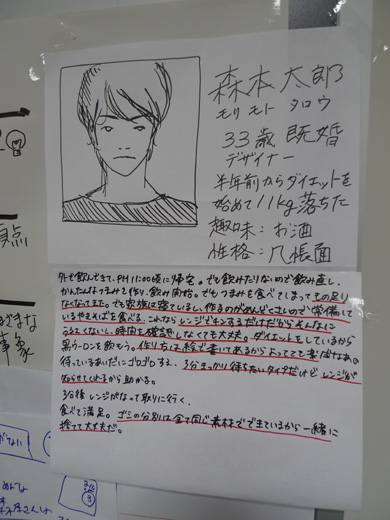 森本 太郎
モリ モト タロウ
33歳 既婚
デザイナー
半年前からダイエットを
始めて11kg落ちた
趣味：お酒
性格：几帳面
外で飲んできて、PM11:00頃に帰宅。でも飲みたりないので飲み直し。
かんたんなつまみを作り、飲み開始。でもつまみを食べてしまってもの足り
なくなってきた。でも家族は寝ているし、作るのがめんどくさいので常備して
いるやきそばを食べる。これならレンジでチンするだけだからそんなに
うるさくないし、時間も確認しなくても大丈夫。ダイエットをしているから
黒ウーロンを飲もう。作り方は絵で書いてあるからよってても楽だなあ
待っているあいだにゴロゴロする。3分まっかり待ちたいタイプだけどレンジが
知らせてくれるから助かる。
3分後レンジがなって取りに行く。
食べて満足。ゴミの分別は全て同じ素材でできているから一緒に
捨て大丈夫だ。
点
事象